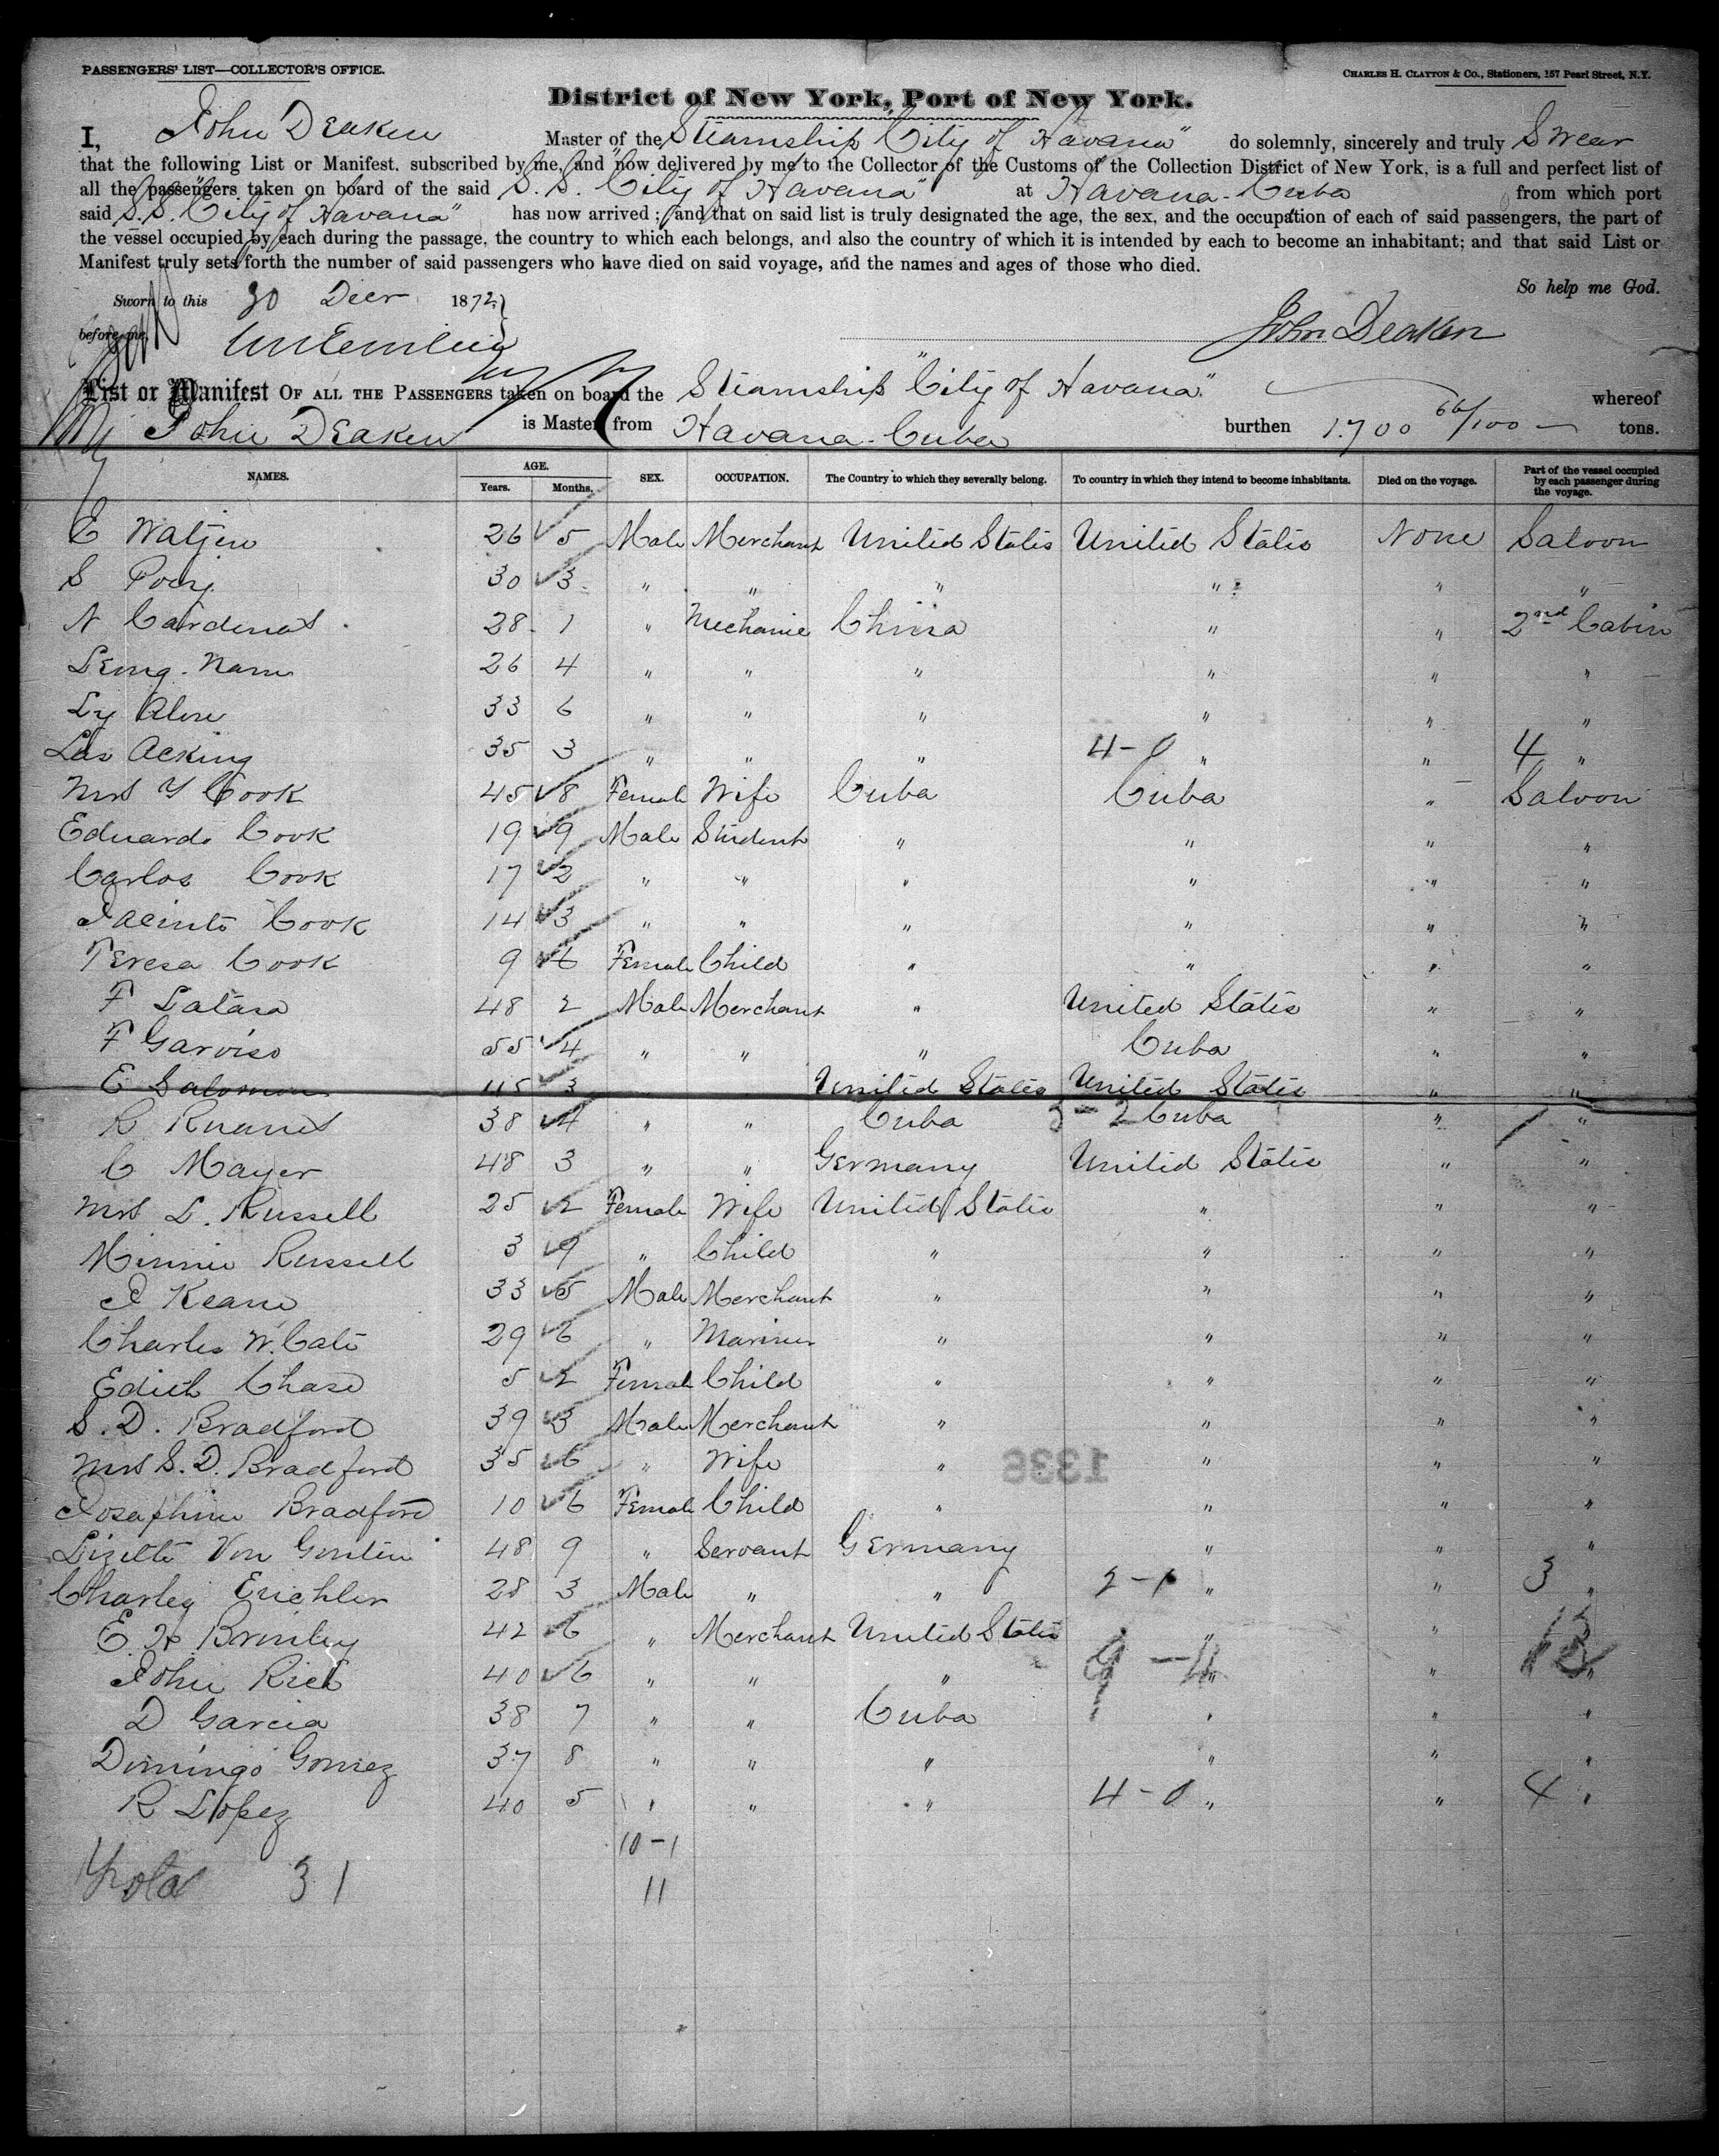 PASSENGERS' LIST—COLLECTOR'S OFFICE.
CHARLES H. CLAYTON & CO., Stationers, 157 Pearl Street, N.Y.
District of New York, Port of New York.
I, John Deaken Master of the Steamship "City of Havana" do solemnly, sincerely and truly Swear
that the following List or Manifest. subscribed by me, and now delivered by me to the Collector of the Customs of the Collection District of New York, is a full and perfect list of
all the passengers taken on board of the said S.S. "City of Havana" at Havana - Cuba from which port
said S.S. "City of Havana" has now arrived; and that on said list is truly designated the age, the sex, and the occupation of each of said passengers, the part of
the vessel occupied by each during the passage, the country to which each belongs, and also the country of which it is intended by each to become an inhabitant; and that said List or
Manifest truly sets forth the number of said passengers who have died on said voyage, and the names and ages of those who died.
So help me God.
Sworn to this 30 Decr 1872
before me,
John Deaken
List or Manifest OF ALL THE PASSENGERS taken on board the Steamship "City of Havana" whereof
John Deaken is Master from Havana - Cuba burthen 1.700 66/100 tons.
NAMES. AGE. Years. Months. SEX. OCCUPATION. The Country to which they severally belong. To country in which they intend to become inhabitants. Died on the voyage. Part of the vessel occupied by each passenger during the voyage.
E Watjen 26 5 Male Merchant United States United States None Saloon
S Poey 30 3 " " " " " "
N Cardenas 28 1 " Mechanic China " " 2nd Cabin
Leung Nam 26 4 " " " " " "
Ly 33 6 " " " " " "
Acking 35 3 " " " 4-0 " " 4 "
Mrs Y Cook 45 8 Female Wife Cuba Cuba " Saloon
Eduardo Cook 19 9 Male Student " " " "
Carlos Cook 17 2 " " " " " "
Jacinto Cook 14 3 " " " " " "
Teresa Cook 9 6 Female Child " " " "
F Latasa 48 2 Male Merchant " United States " "
F Garviso 55 4 " " " Cuba " "
E Salomon 45 3 United States United States " "
R Ruanes 38 4 " " Cuba 3-2 Cuba " "
C Mayer 48 3 " " Germany United States " "
Mrs L. Russell 25 2 Female Wife United States " " "
Minnie Russell 3 9 " Child " " " "
J Keane 33 5 Male Merchant " " " "
Charles W. Cate 29 6 " Mariner " " " "
Edith Chase 5 2 Female Child " " " "
S. D. Bradford 39 3 Male Merchant " " " "
Mrs S. D. Bradford 35 6 " Wife " " " "
1336
Josephine Bradford 10 6 Female Child " " " "
Lizette Von 48 9 " Servant Germany " " "
Charley 28 3 Male " " 2-1 " " 3 "
E. H Brinley 42 6 " Merchant United States " "
John Rice 40 6 " " " 9-4 " " 13 "
D Garcia 38 7 " " Cuba " " "
Domingo Gomez 37 8 " " " " " "
R Lopez 40 5 " " " 4-0 " " 4 "
10-1
Total 31 11